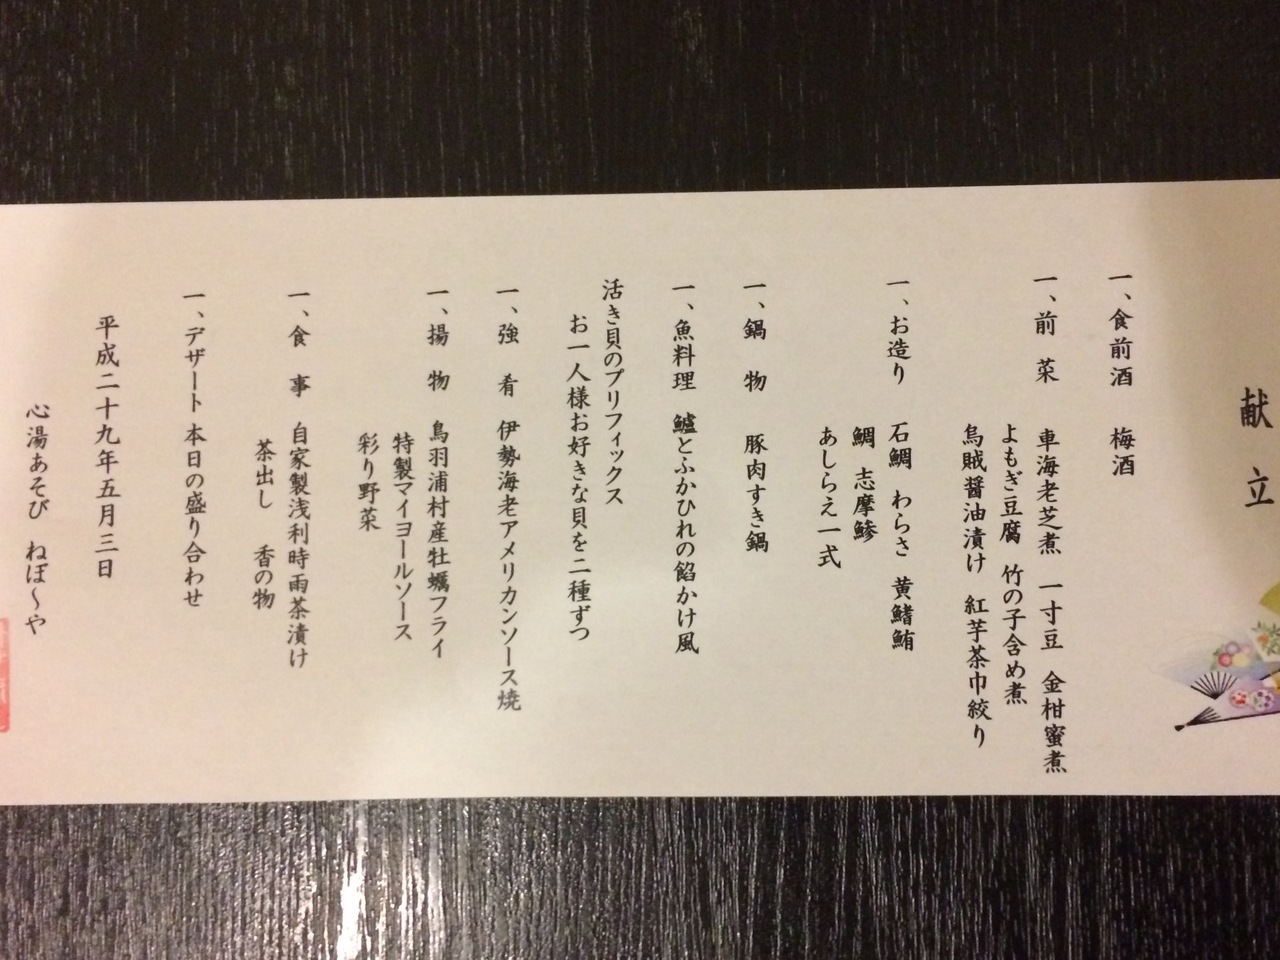 献立
一、食前酒　梅酒
一、前　菜　車海老芝煮　一寸豆　金柑蜜煮
よもぎ豆腐　竹の子含め煮
烏賊醤油漬け　紅芋茶巾絞り
一、お造り　石鯛　わらさ　黄鰭鮪
鯛　志摩鯵
あしらえ一式
一、鍋　物　豚肉すき鍋
一、魚料理　鱸とふかひれの餡かけ風
活き貝のプリフィックス
お一人様お好きな貝を二種ずつ
一、強　肴　伊勢海老アメリカンソース焼
一、揚　物　鳥羽浦村産牡蠣フライ
特製マイヨールソース
彩り野菜
一、食　事　自家製浅利時雨茶漬け
茶出し　香の物
一、デザート　本日の盛り合わせ
平成二十九年五月三日
心湯あそび　ねぼ〜や